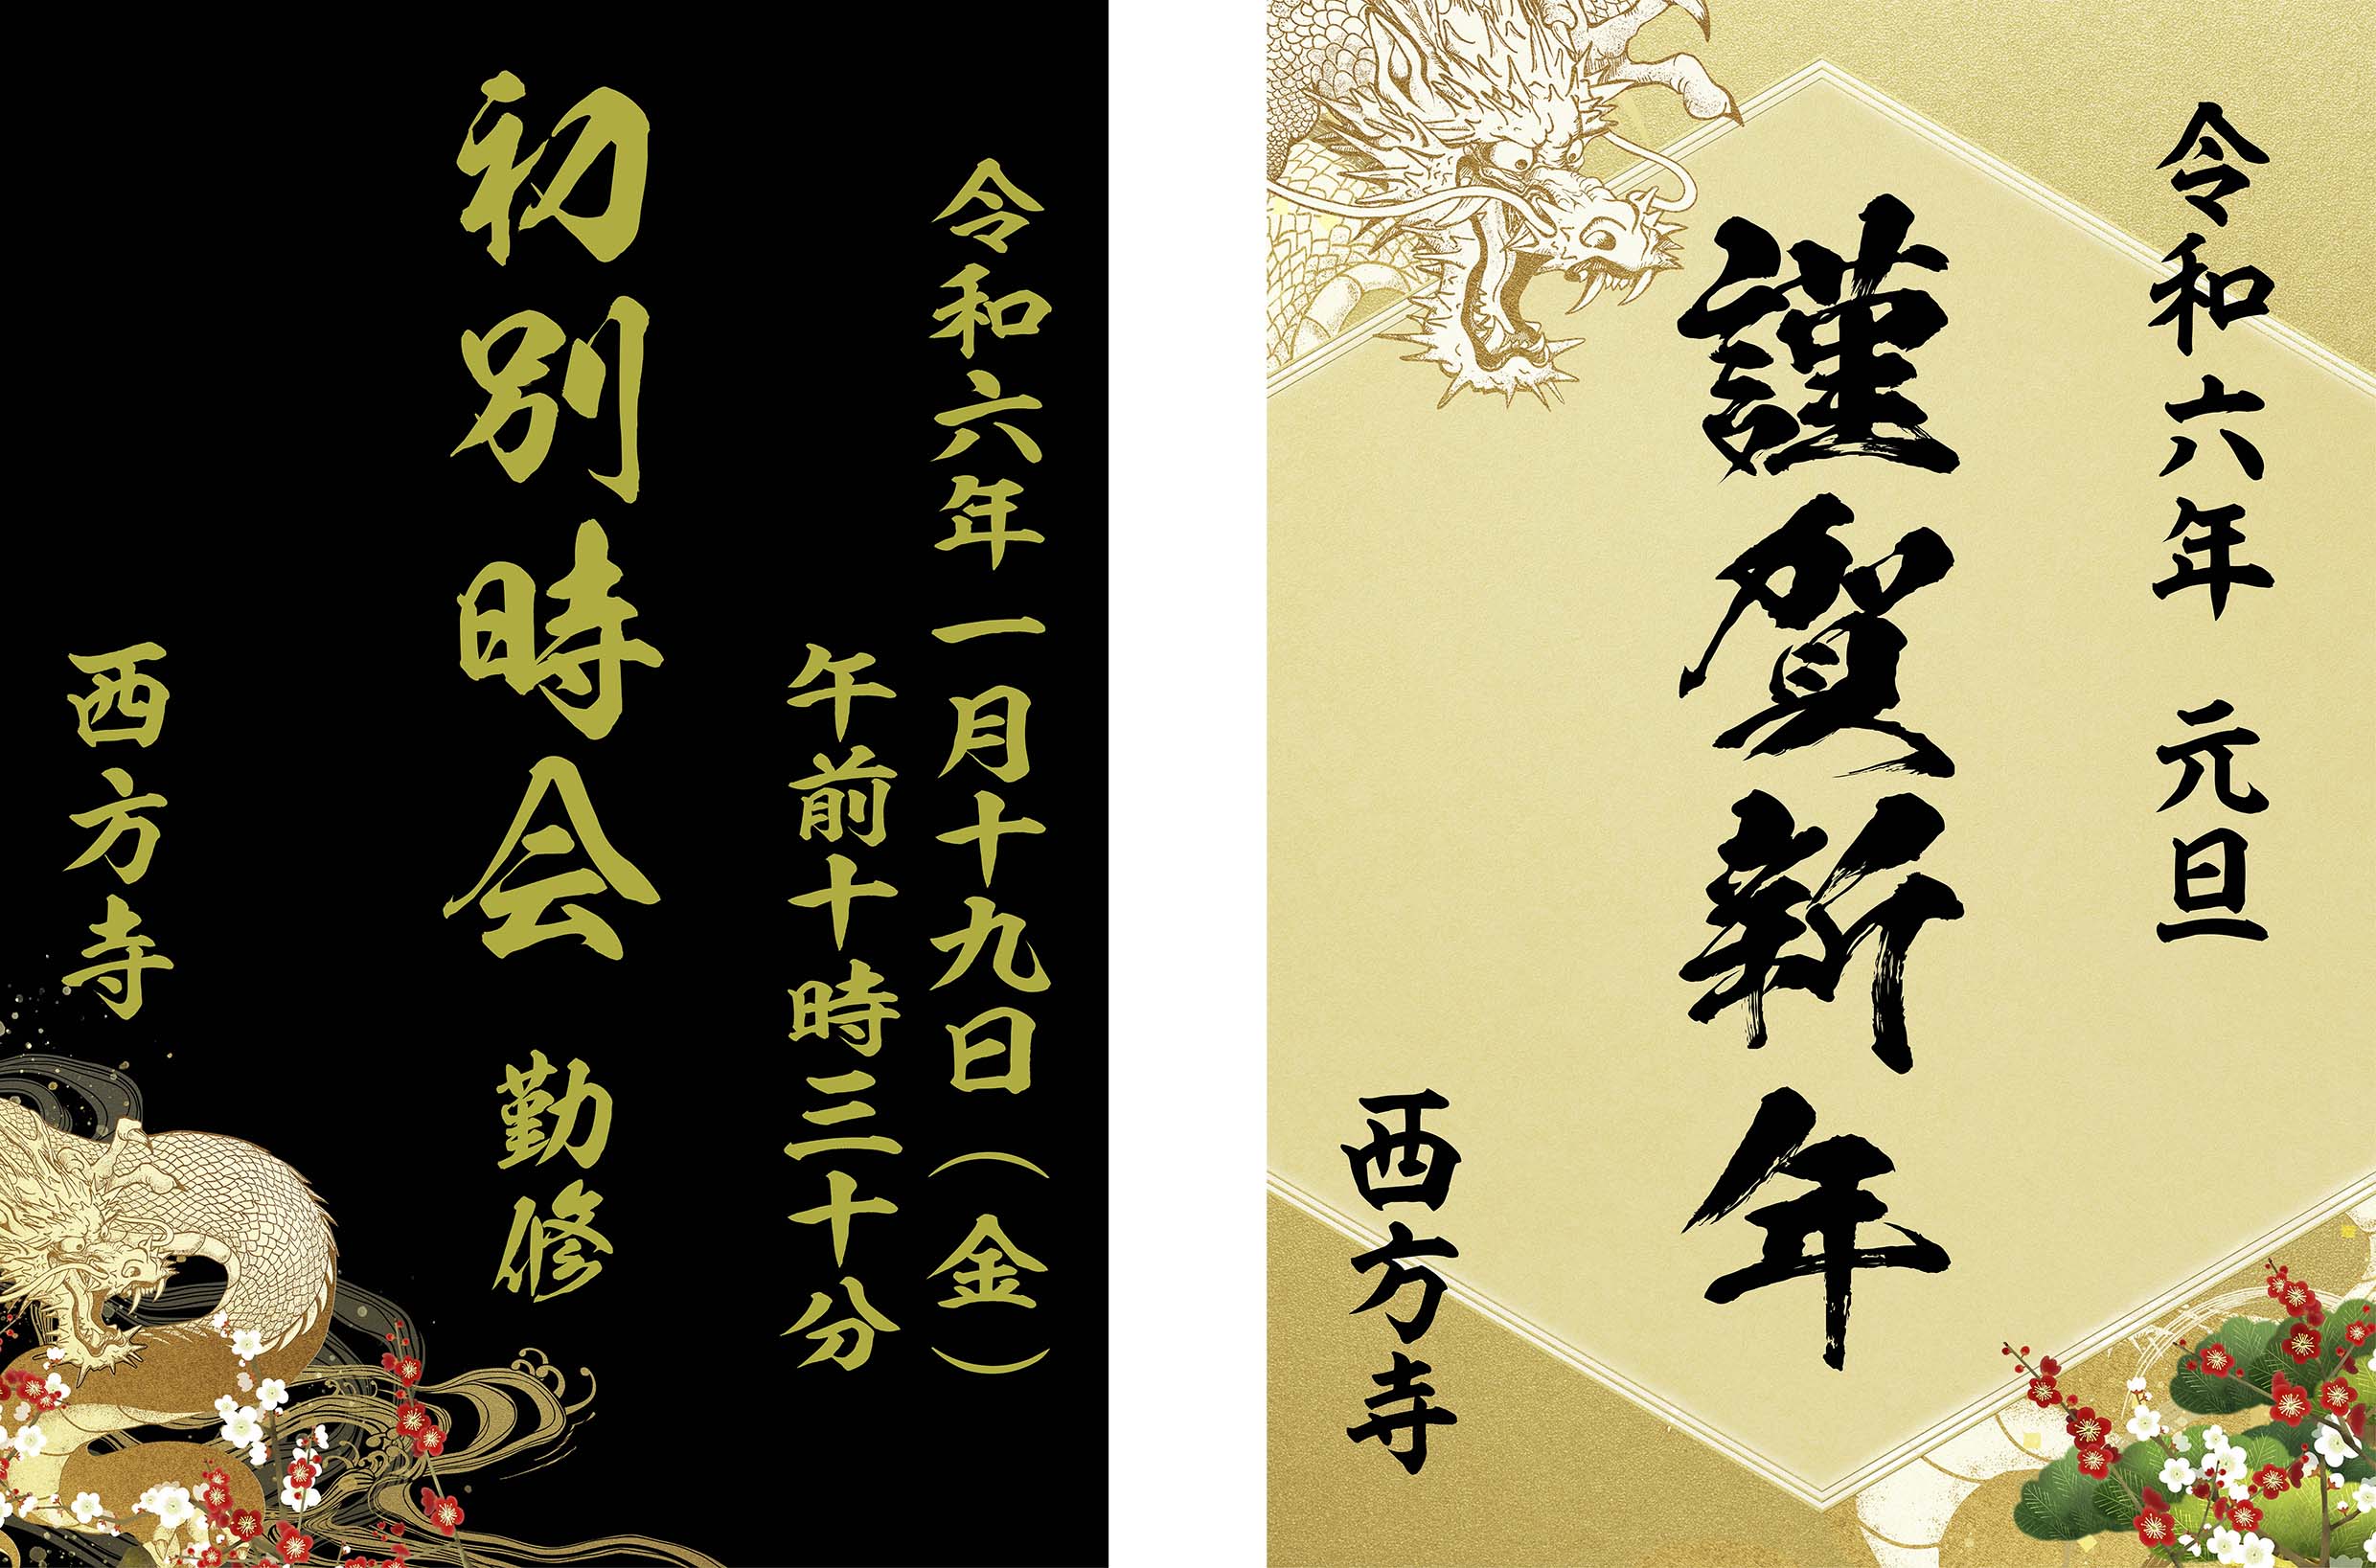 令和六年一月十九日(金)
午前十時三十分
初別時会 勤修
西方寺
令和六年 元旦
謹賀新年
西方寺